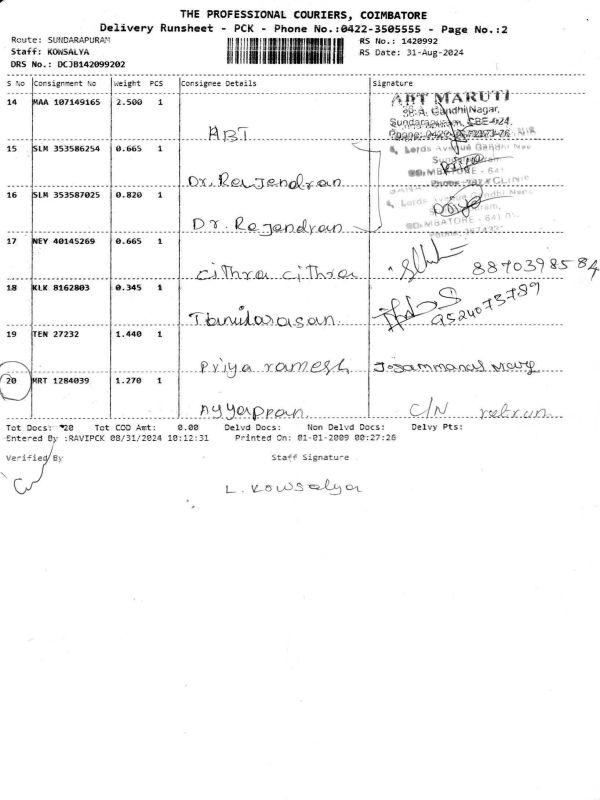 THE PROFESSIONAL COURIERS, COIMBATORE
Delivery Runsheet - PCK - Phone No.:0422-3505555 - Page No.:2
Route: SUNDARAPURAM
RS No.: 1420992
Staff: KOWSALYA
RS Date: 31-Aug-2024
DRS No.: DCJB142099202
S No Consignment No Weight PCS Consignee Details Signature
14 MAA 107149165 2.500 1
ABT MARUTI
Gandhi Nagar,
ABT
15 SLM 353586254 0.665 1
Lords Avenue Gandhi
Dr. Rajendran
16 SLM 353587025 0.820 1
Priya
Dr. Rajendran
17 NEY 40145269 0.665 1
Cithra Cithra
8870398584
18 KLK 8162803 0.345 1
9524073789
19 TEN 27232 1.440 1
Priya ramesh
20 MRT 1284039 1.270 1
Ayyappan
C/N retrun
Tot Docs: 20 Tot COD Amt: 0.00 Delvd Docs: Non Delvd Docs: Delvy Pts:
Entered By :RAVIPCK 08/31/2024 10:12:31 Printed On: 01-01-2009 00:27:26
Verified By Staff Signature
L. Kowsalya